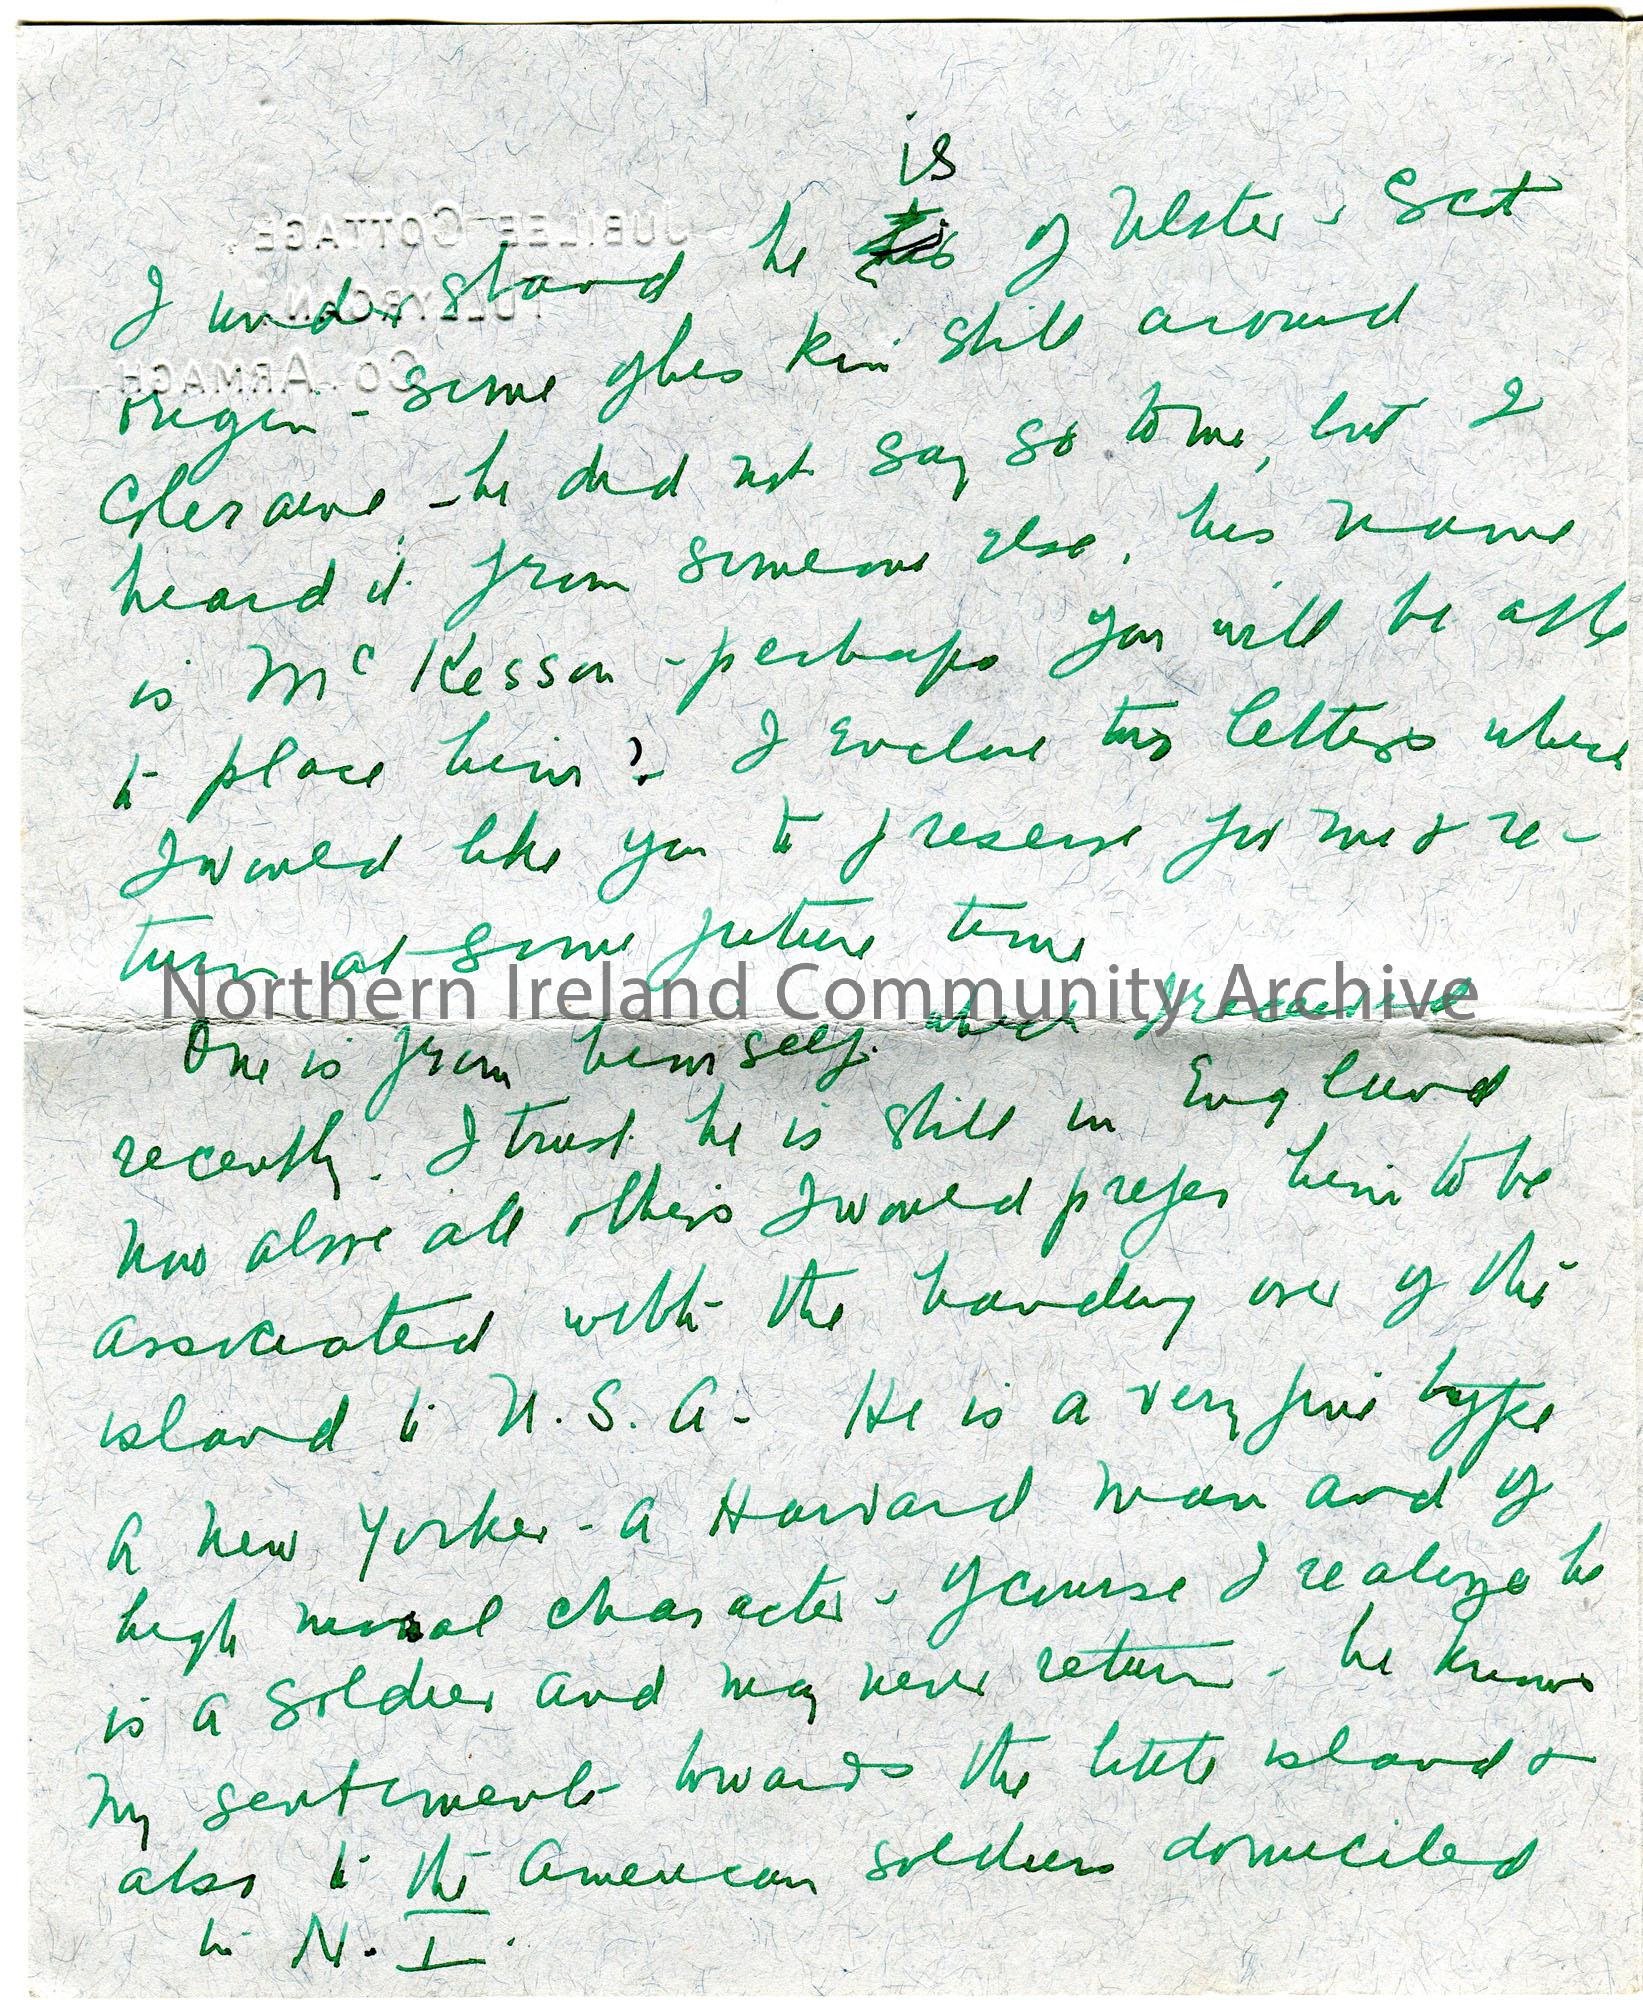 JUBILEE COTTAGE,
TULLYROAN,
CO. ARMAGH.
is
I understand he of Ulster - Scot
origin - some of his kin still around
Coleraine - he did not say so to me, but I
heard it from someone else, his name
is McKesson - perhaps you will be able
to place him? I enclose two letters where
I would like you to preserve for me & re-
turn at some future time
One is from himself which I received
recently. I trust he is still in England
now above all others I would prefer him to be
associated with the handing over of this
island to U.S.A. He is a very fine type
a New Yorker - a Harvard man and of
high moral character - of course I realize he
is a soldier and may never return - he knows
my sentiments towards the little island &
also to the American soldiers domiciled
in N.I.
Northern Ireland Community Archive